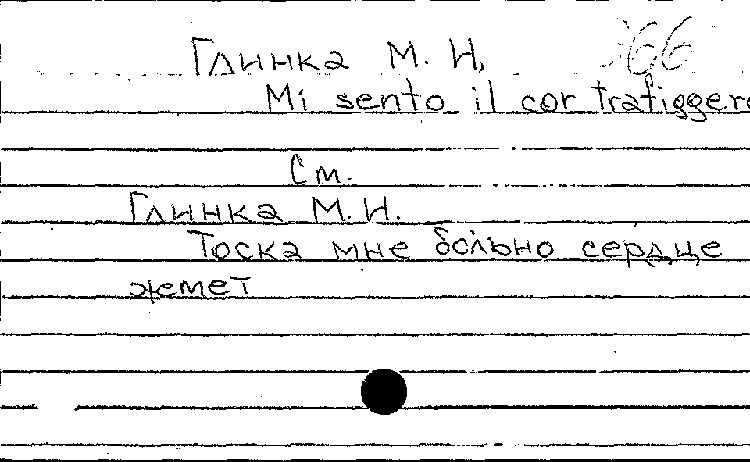 66
Глинка М. И.
Mi sento il cor trafiggere
См.
Глинка М. И.
Тоска мне больно сердце
жмет